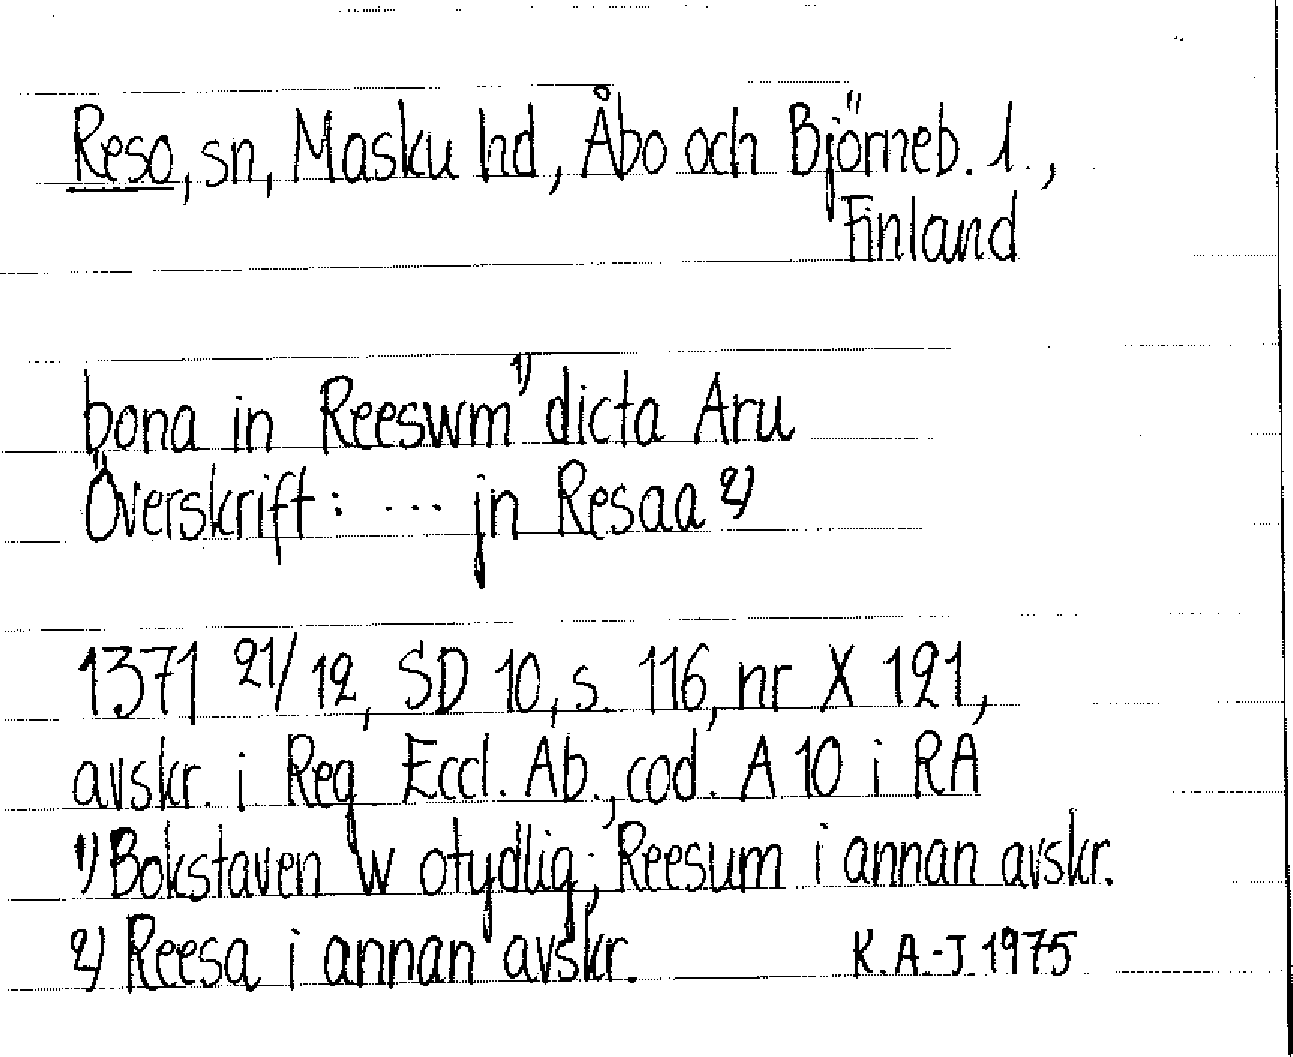 Reso, sn, Masku hd, Åbo och Björneb. l.,
Finland
bona in Reeswm 1) dicta Aru
Överskrift: ... jn Resaa 2)
1371 21/12, SD 10, s. 116, nr X 121,
avskr. i Reg Eccl. Ab., cod. A 10 i RA
1) Bokstaven w otydlig; Reesum i annan avskr.
2) Reesa i annan avskr. K.A.-J. 1975